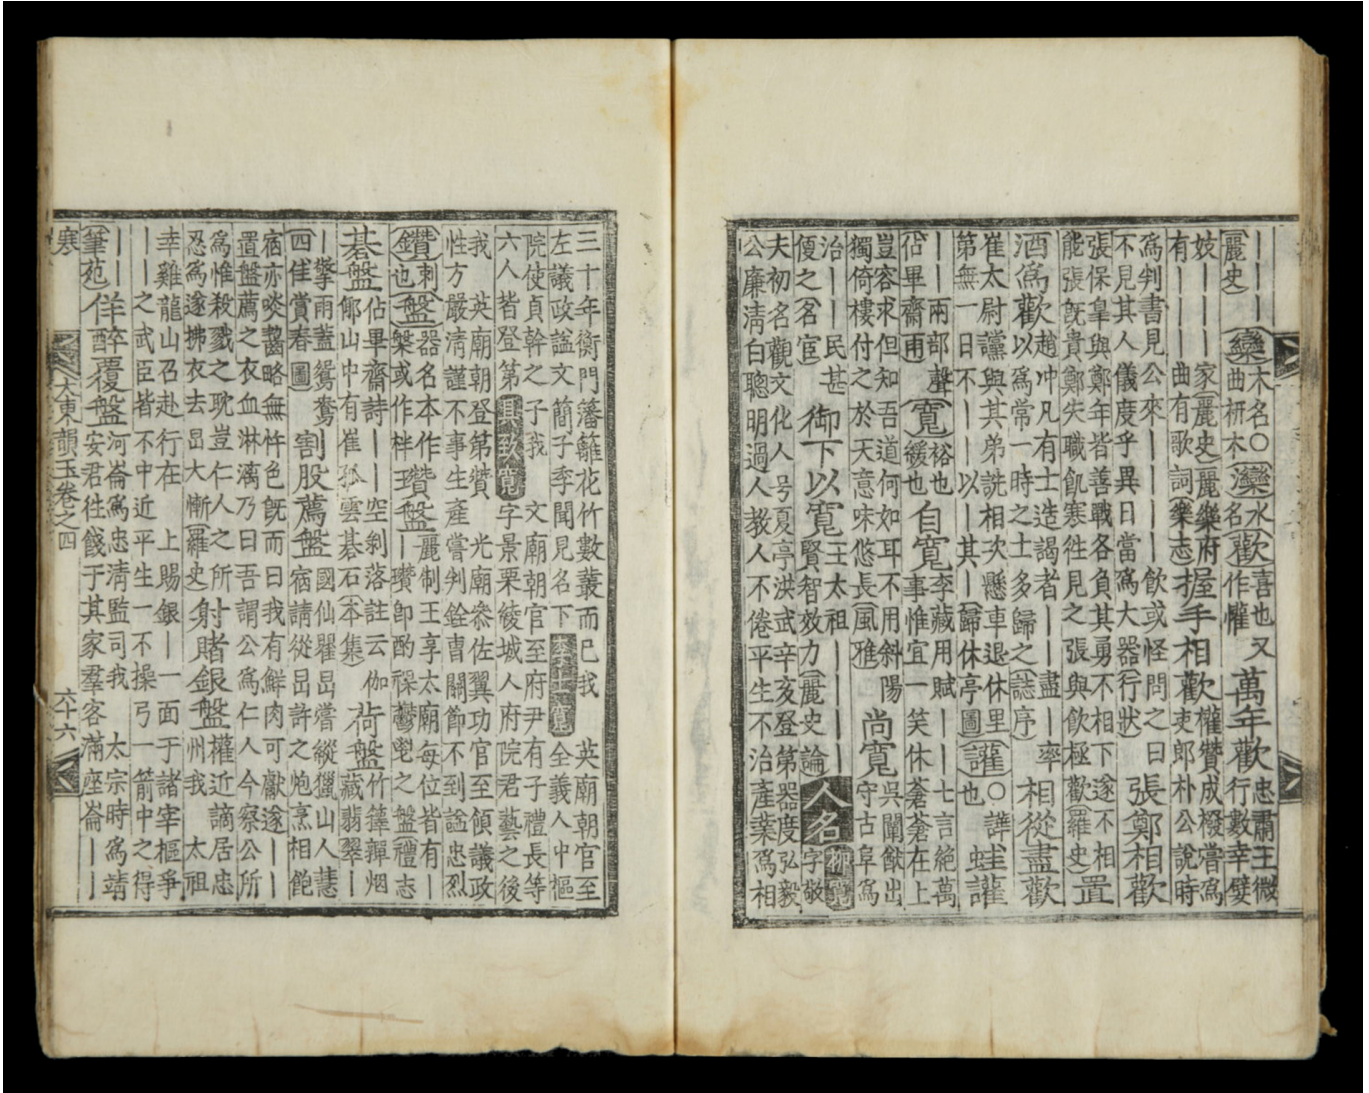 ｜｜｜麗史 欒木名○曲枅木 灤水名 歡喜也又作懽 萬年歡忠肅王微行數幸嬖
妓｜｜｜家麗史麗樂府有｜｜｜曲有歌詞樂志 握手相歡權攢成撥嘗爲吏郎朴公說時
爲判書見公來｜｜｜｜飮或怪問之曰不見其人儀度乎異日當爲大器行狀 張鄭相歡
張保皐與鄭年皆善戰各負其勇不相下遂不相能張旣貴鄭失職飢寒徃見之張與飮極歡羅史 置
酒爲歡趙冲凡有士造謁者｜｜盡｜率以爲常一時之士多歸之誌序 相從盡歡
崔太尉讜與其弟詵相次懸車退休里第無一日不｜｜以｜其｜歸休亭圖 讙○譁也 蛙讙
｜｜兩部聲佔畢齋甫 寬裕也緩也 自寬李藏用賦｜｜七言絶萬事惟宜一笑休蒼蒼在上
豈容求但知吾道何如耳不用斜陽獨倚樓付之於天意味悠長風雅 尚寬吳闡猷出守古阜爲
治｜｜民甚便之名宦 御下以寬王太祖｜｜｜｜賢智效力麗史論 人名 柳寬字敬
夫初名觀文化人号夏亭洪武辛亥登第器度弘毅公廉淸白聰明過人敎人不倦平生不治産業爲相
三十年衡門藩籬花竹數叢而已我 英廟朝官至左議政謚文簡子季聞見名下 李士寬全義人中樞
院使貞幹之子我 文廟朝官至府尹有子禮長等六人皆登第 具致寬字景栗綾城人府院君藝之後
我 英廟朝登第贊 光廟叅佐翼功官至領議政性方嚴淸謹不事生產嘗判銓曹關節不到謚忠烈
鑽刺也 盤器名本作槃或作柈 瓚盤麗制王享太廟每位皆有｜｜瓚卽酌祼鬱鬯之盤禮志
碁盤佔畢齋詩｜｜空剝落註云伽倻山中有崔孤雲碁石本集 荷盤竹籜嚲烟藏翡翠｜
｜擎雨蓋鴛鴦四佳賞春圖 割股薦盤國仙瞿旵嘗縱獵山人慧宿請從旵許之炮烹相飽
宿亦啖齧略無忤色旣而曰我有鮮肉可獻遂｜置盤薦之衣血淋漓乃曰吾謂公爲仁人今察公所
爲惟殺戮之耽豈仁人之所忍爲遂拂衣去旵大慚羅史 射賭銀盤權近謫居忠州我 太祖
幸雞龍山召赴行在 上賜銀｜一面于諸宰樞爭｜｜之武臣皆不中近平生一不操弓一箭中之得
｜｜筆苑 佯醉覆盤河崙爲忠淸監司我 太宗時爲靖安君徃餞于其家羣客滿座崙｜｜
寒 大東韻玉卷之四 六十六